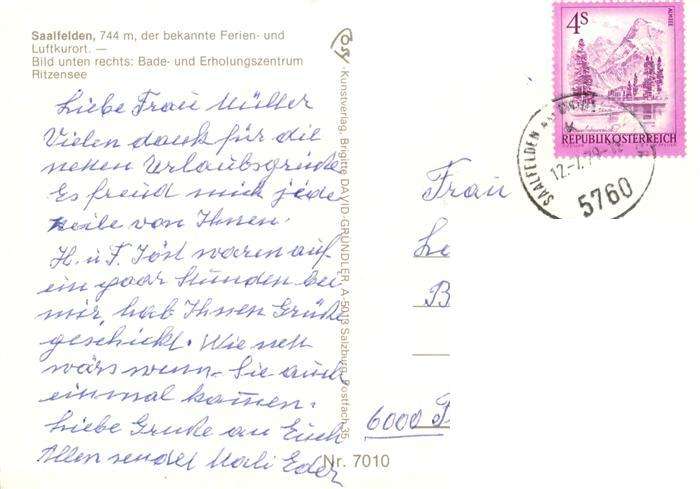 Saalfelden, 744 m, der bekannte Ferien- und
Luftkurort. —
Bild unten rechts: Bade- und Erholungszentrum
Ritzensee
Liebe Frau Müller
Vielen dank für die
netten Urlaubsgrüße
Es freud mich jede
Zeile von Ihnen.
H. u F. Jöst waren auf
ein paar Stunden bei
mir, hab Ihnen Grüße
geschickt. Wie nett
wärs wenn Sie auch
einmal kommen.
Liebe Gruße an Euch
Allen sendet Mali Eder
Cosy
-Kunstverlag, Brigitte DAVID-GRÜNDLER, A-5013 Salzburg, Postfach 35
Nr. 7010
4S
ALMSEE
REPUBLIK ÖSTERREICH
SAALFELDEN AM
12.-7.79
5760
Frau
Le
B
6000